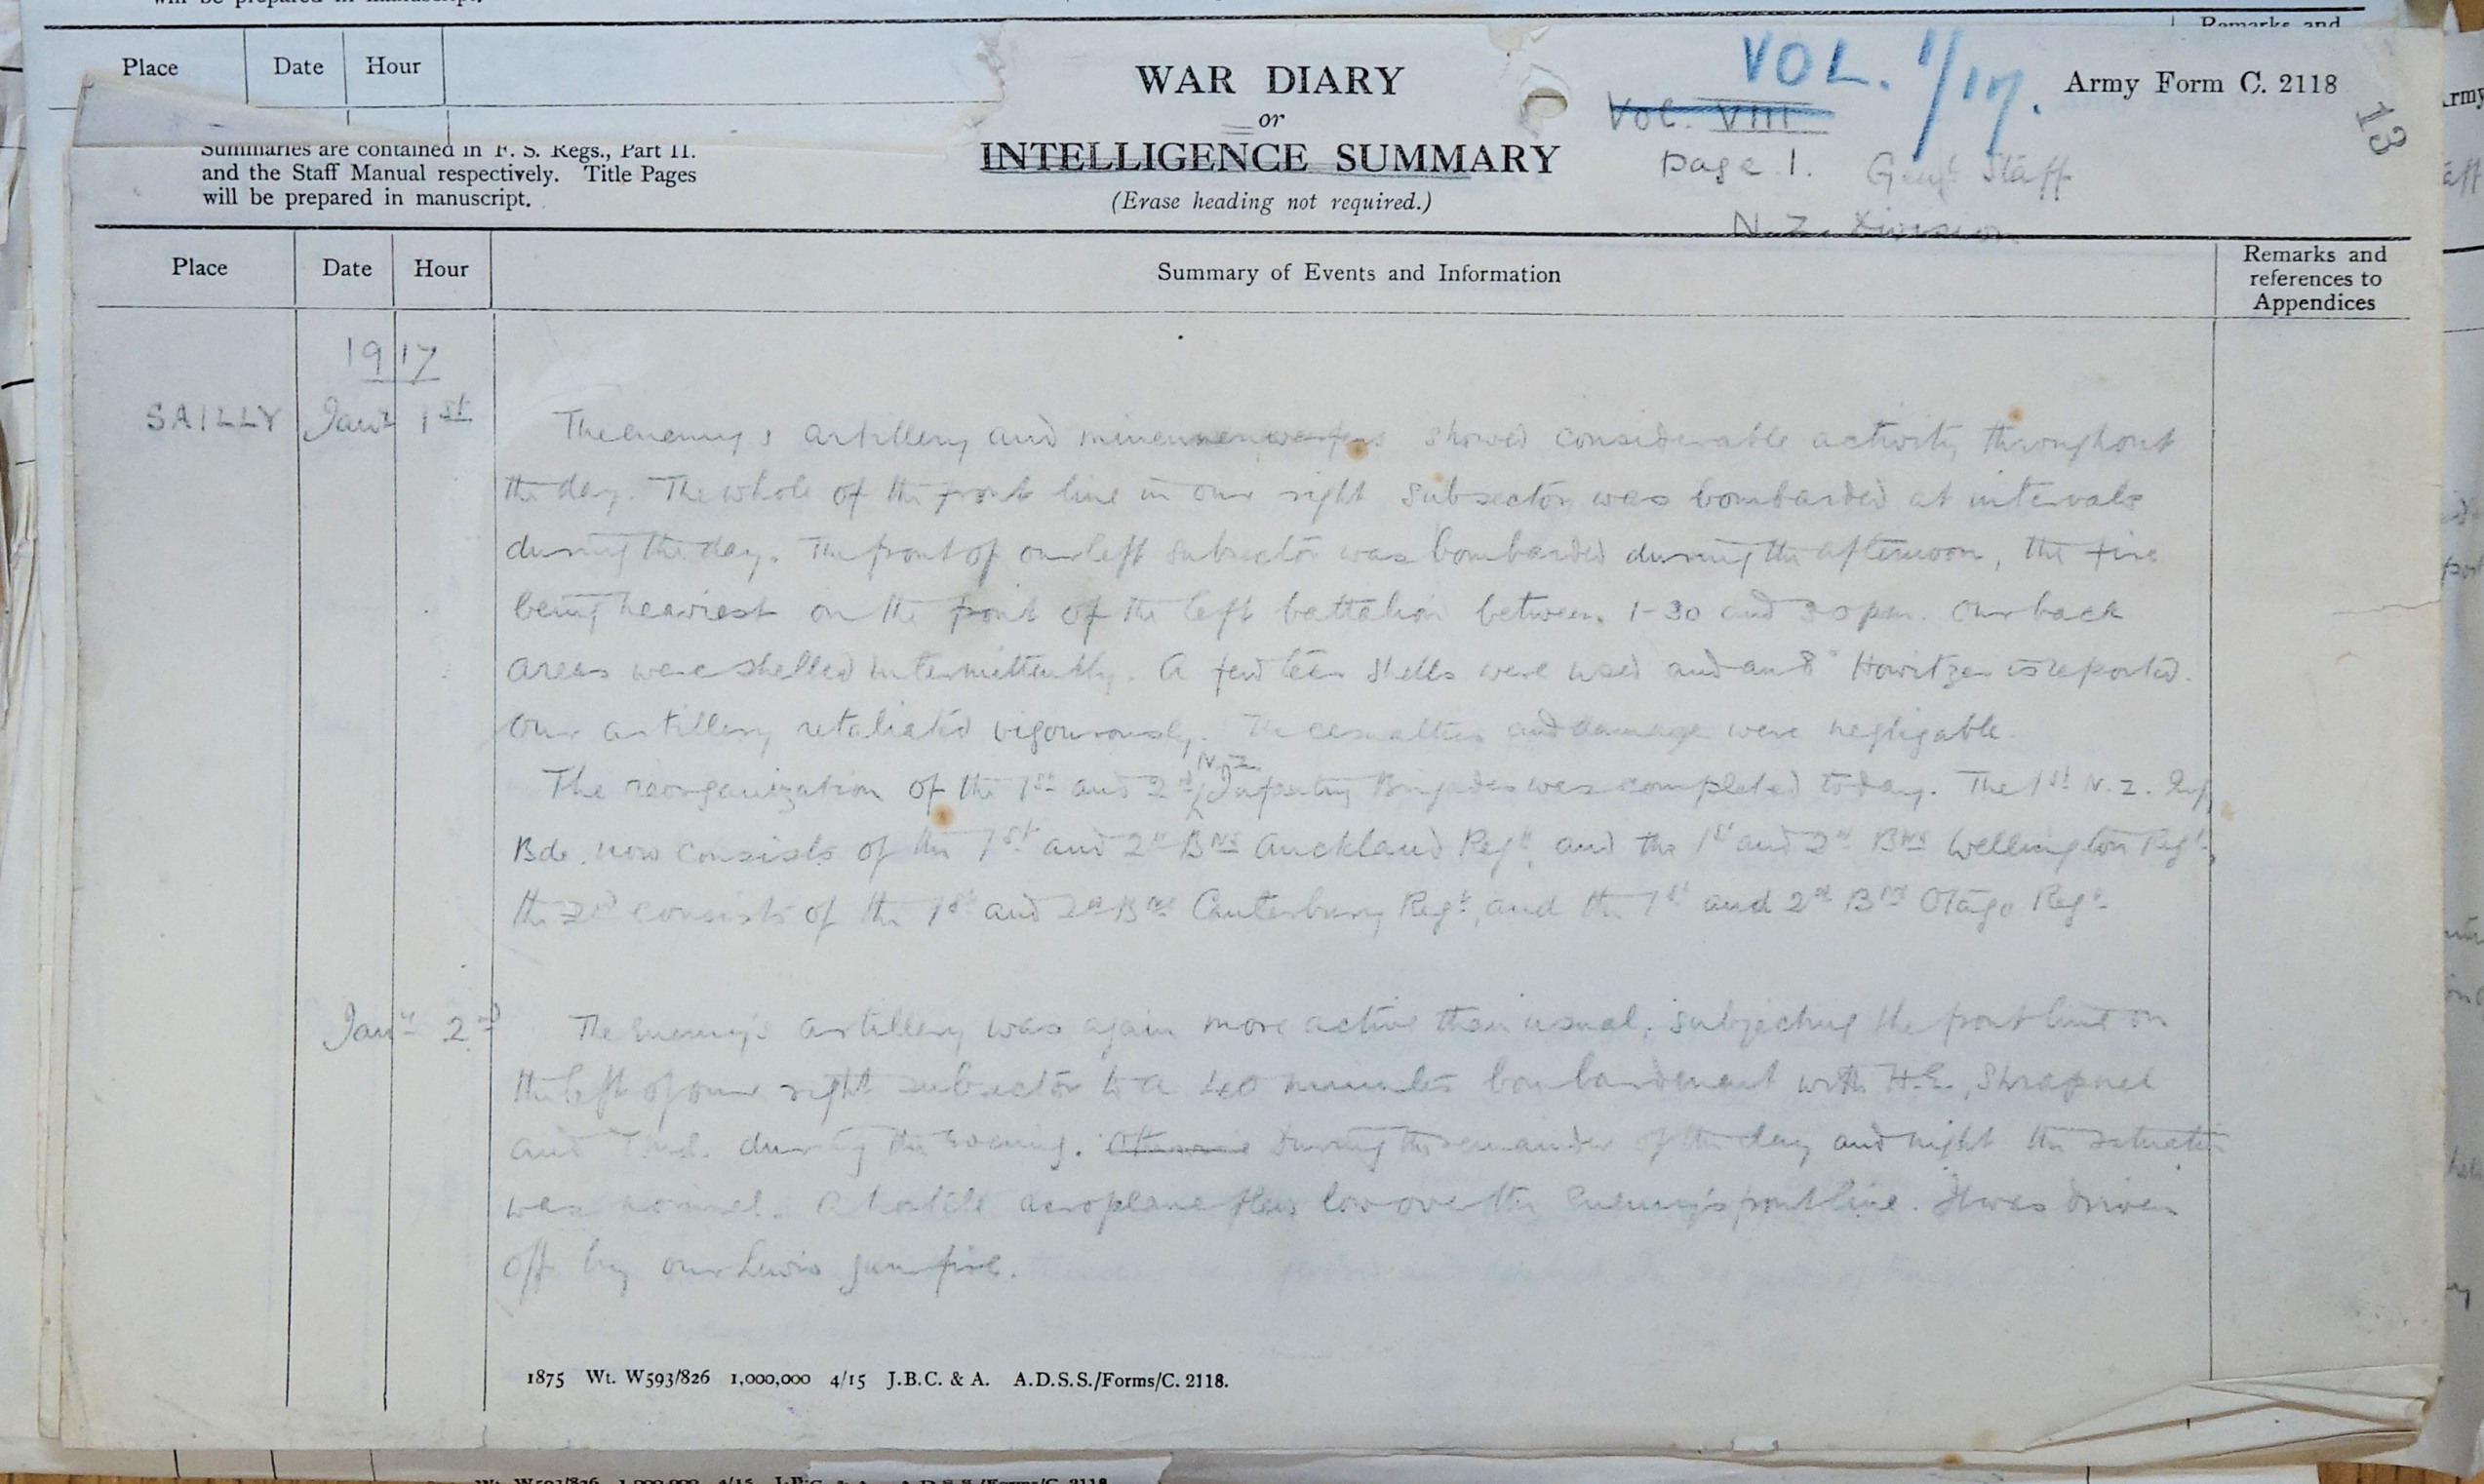 will be prepared in manuscript.
Remarks and
Place Date Hour
WAR DIARY
or
INTELLIGENCE SUMMARY
(Erase heading not required.)
VOL. 1/17.
Vol. VIII
page 1. Genl Staff
N.Z. Division
Army Form C. 2118
13
Summaries are contained in F. S. Regs., Part II.
and the Staff Manual respectively. Title Pages
will be prepared in manuscript.
Place Date Hour Summary of Events and Information Remarks and references to Appendices
1917
SAILLY Jany 1st The enemy's artillery and minenwerfers showed considerable activity throughout
the day. The whole of the front line in our right subsector was bombarded at intervals
during the day. The front of our left subsector was bombarded during the afternoon, the fire
being heaviest on the front of the left battalion between 1-30 and 3 0 pm. Our back
areas were shelled intermittently. A few tear shells were used and an 8" Howitzer is reported.
Our artillery retaliated vigourously. The casualties and damage were negligable.
The reorganization of the 1st and 2nd N.Z. Infantry Brigades was completed today. The 1st N.Z. Inf
Bde. now consists of the 1st and 2nd Bns Auckland Regt, and the 1st and 2nd Bns Wellington Regt,
the 2nd consists of the 1st and 2nd Bns Canterbury Regt, and the 1st and 2nd Bns Otago Regt.
Jany 2nd The Enemy's artillery was again more active than usual, subjecting the front line on
the left of our right subsector to a 40 minutes bombardment with H.E., Shrapnel
and T.M.S. during the Evening. Otherwise During the remainder of the day and night the situation
was normal. A hostile aeroplane flew low over the Enemy's front line. It was driven
off by our Lewis gun fire.
1875 Wt. W593/826 1,000,000 4/15 J.B.C. & A. A.D.S.S./Forms/C. 2118.